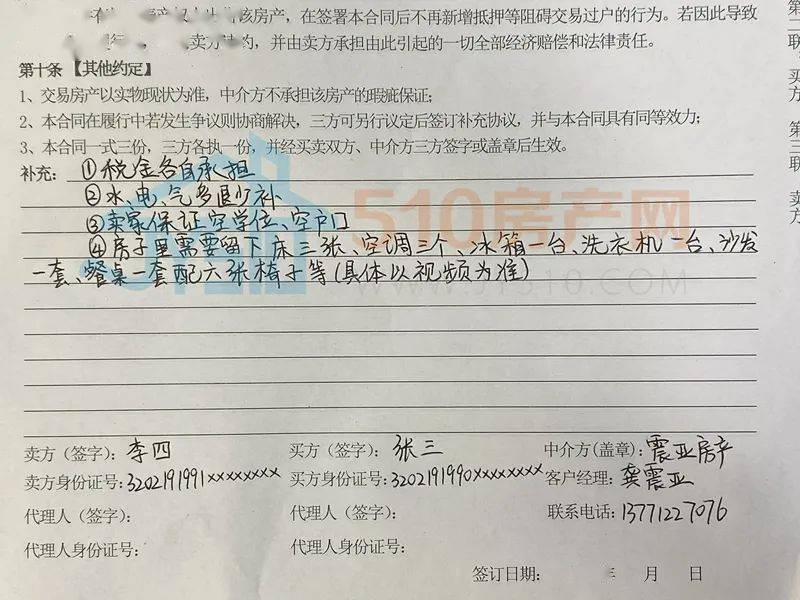 该房产，在签署本合同后不再新增抵押等阻碍交易过户的行为。若因此导致
卖方违约，并由卖方承担由此引起的一切全部经济赔偿和法律责任。
第十条 【其他约定】
1、交易房产以实物现状为准，中介方不承担该房产的瑕疵保证；
2、本合同在履行中若发生争议则协商解决，三方可另行议定后签订补充协议，并与本合同具有同等效力；
3、本合同一式三份，三方各执一份，并经买卖双方、中介方三方签字或盖章后生效。
补充： ①税金各自承担
②水、电、气多退少补
③卖家保证空学位、空户口
④房子里需要留下床三张、空调三个、冰箱一台、洗衣机一台、沙发
一套、餐桌一套配六张椅子等（具体以视频为准）
510房产网
卖方（签字）：李四 买方（签字）：张三 中介方(盖章)：震亚房产
卖方身份证号：3202191991xxxxxxxx 买方身份证号：3202191990xxxxxxxx 客户经理：龚震亚
代理人（签字）： 代理人（签字）： 联系电话：13771227076
代理人身份证号： 代理人身份证号：
签订日期： 年 月 日